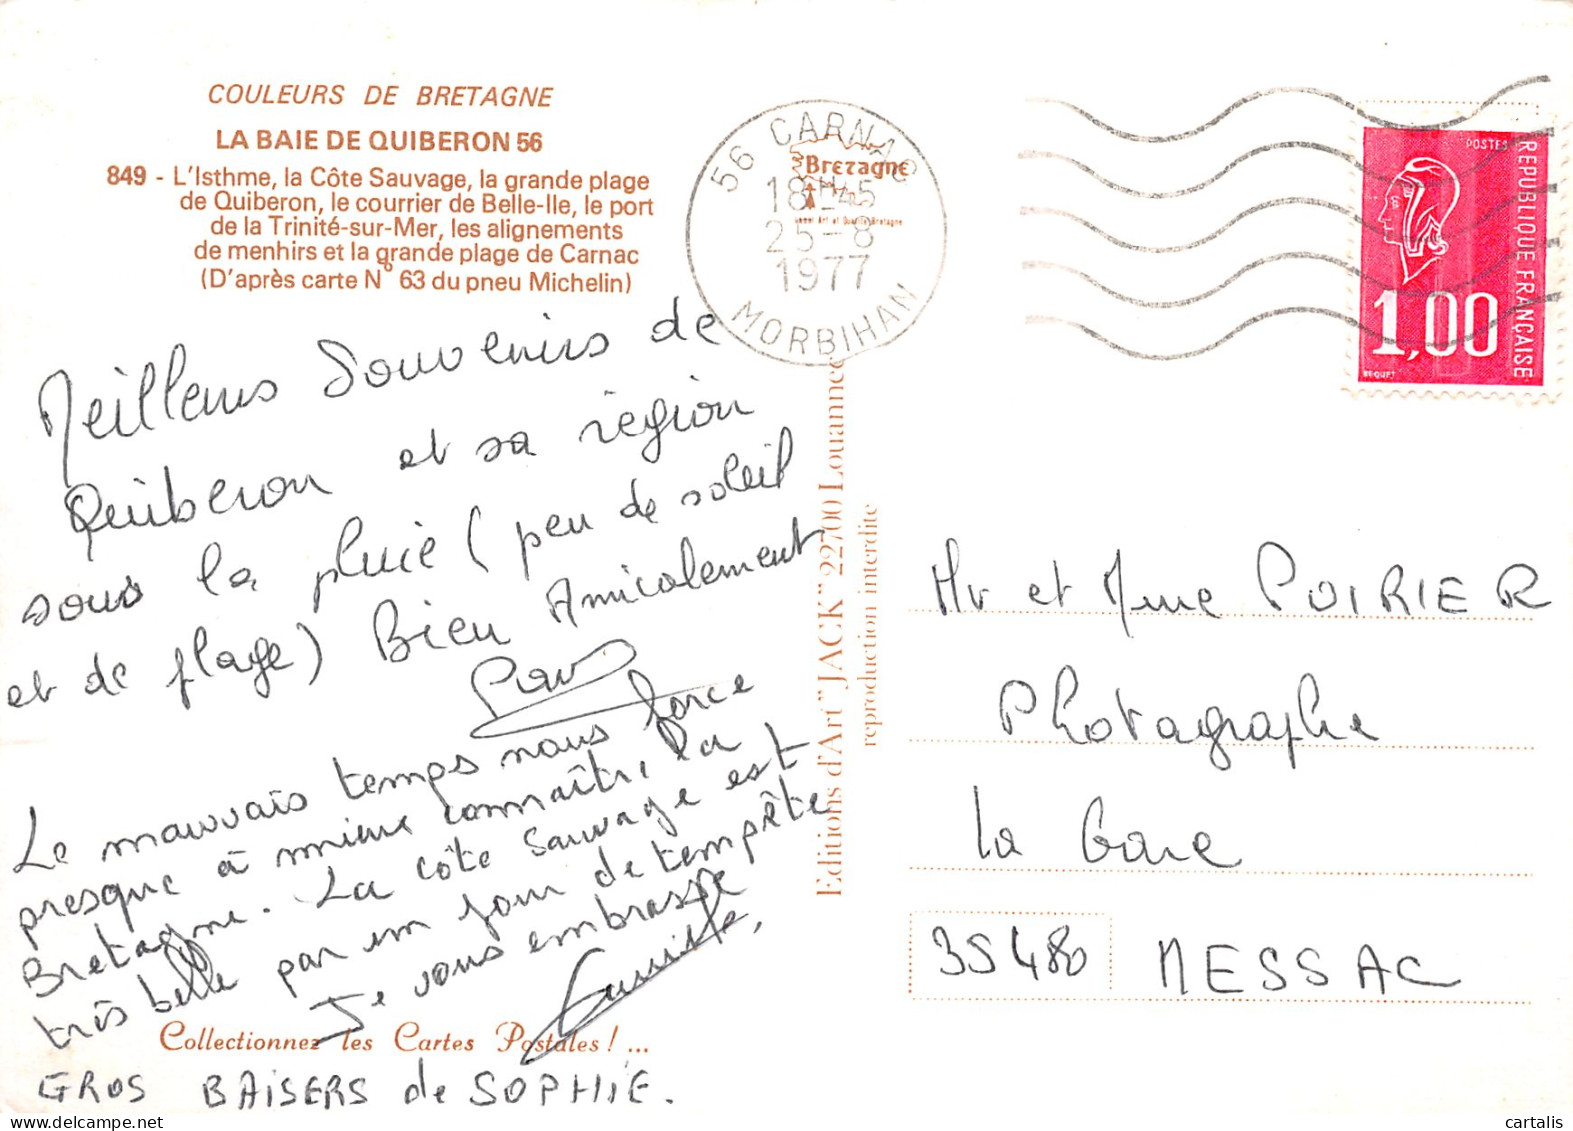 COULEURS DE BRETAGNE
LA BAIE DE QUIBERON 56
849 - L'Isthme, la Côte Sauvage, la grande plage
de Quiberon, le courrier de Belle-Ile, le port
de la Trinité-sur-Mer, les alignements
de menhirs et la grande plage de Carnac
(D'après carte N° 63 du pneu Michelin)
Meilleurs Souvenirs de
Quiberon et sa région
sous la pluie (peu de soleil
et de plage) Bien Amicalement
Le mauvais temps nous force
presque à mieux connaître la
Bretagne. La côte sauvage est
très belle par un jour de tempête
Je vous embrasse
Collectionnez les Cartes Postales ! ...
GROS BAISERS de SOPHIE.
Editions d'Art "JACK" 22700 Louannec
reproduction interdite
56 CARNAC
18H45
25-8
1977
MORBIHAN
Bretagne
POSTES
REPUBLIQUE FRANÇAISE
1,00
BEQUET
Mr et Mme POIRIER
Photographe
La Gare
35480 MESSAC
cartalis